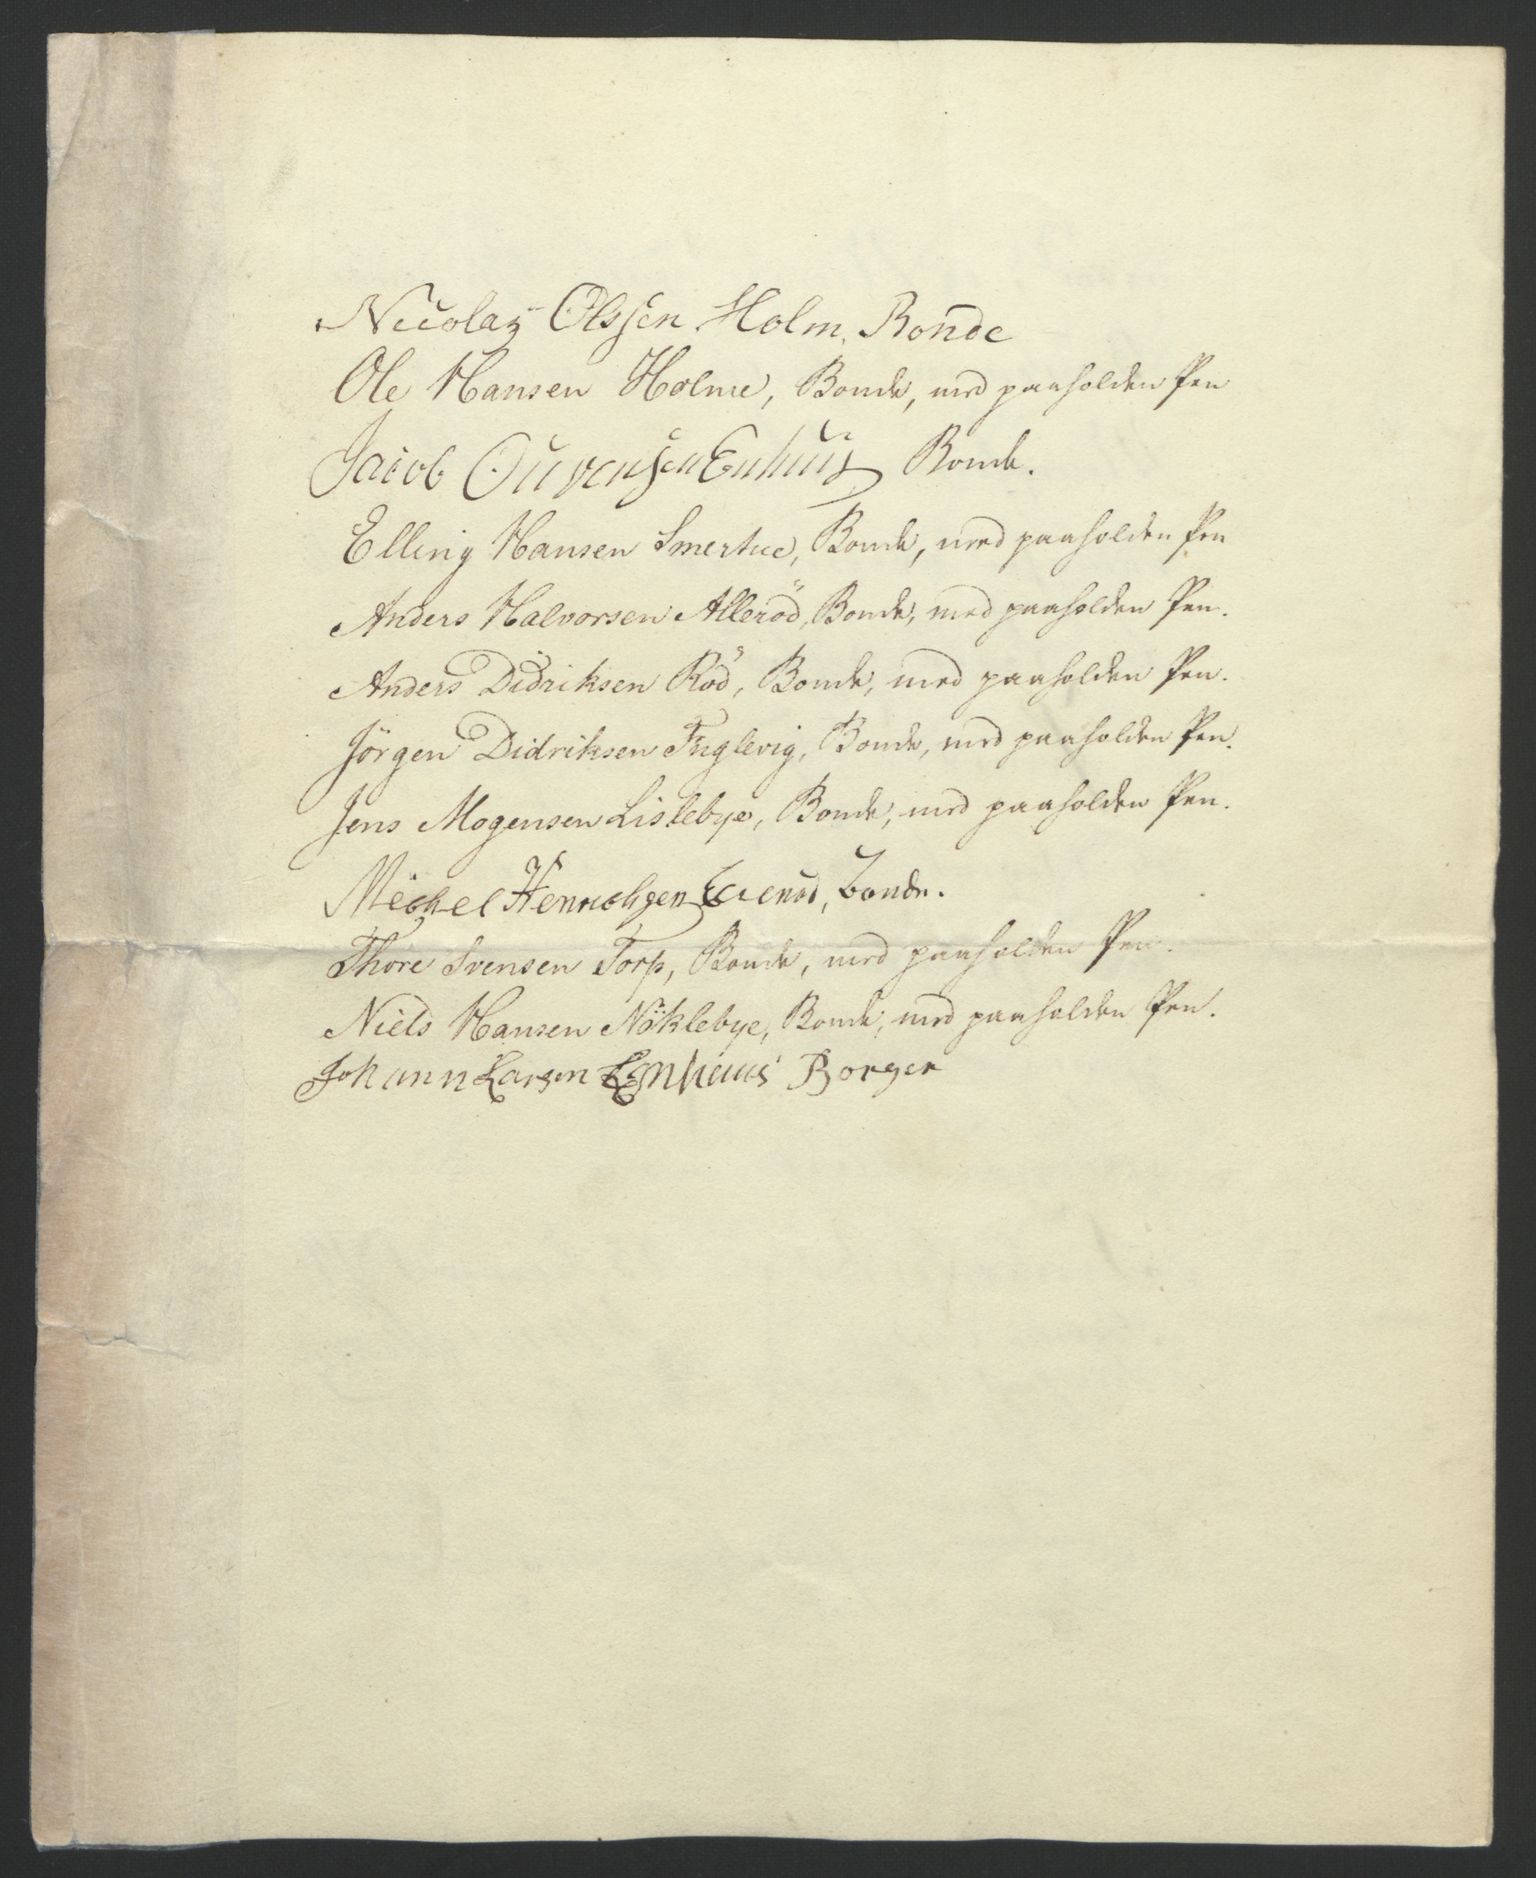 Nicolaÿ Olssen Holm, Bonde
Ole Hansen Holme, Bonde, med paaholden Pen
Jacob Enhuus Bonde.
Elling Hansen Smertue, Bonde, med paaholden Pen
Anders Halvorsen Alleröd, Bonde, med paaholden Pen.
Anders Didriksen Röd, Bonde, med paaholden Pen.
Jörgen Didriksen Fuglevig, Bonde, med paaholden Pen.
Jens Mogensen Lislebye, Bonde, med paaholden Pen.
Michel Henrichsen bonde.
Thore Svensen Torp, Bonde, med paaholden Pen.
Niels Hansen Nöklebye, Bonde, med paaholden Pen.
Johann Larsen Enhuus Borger